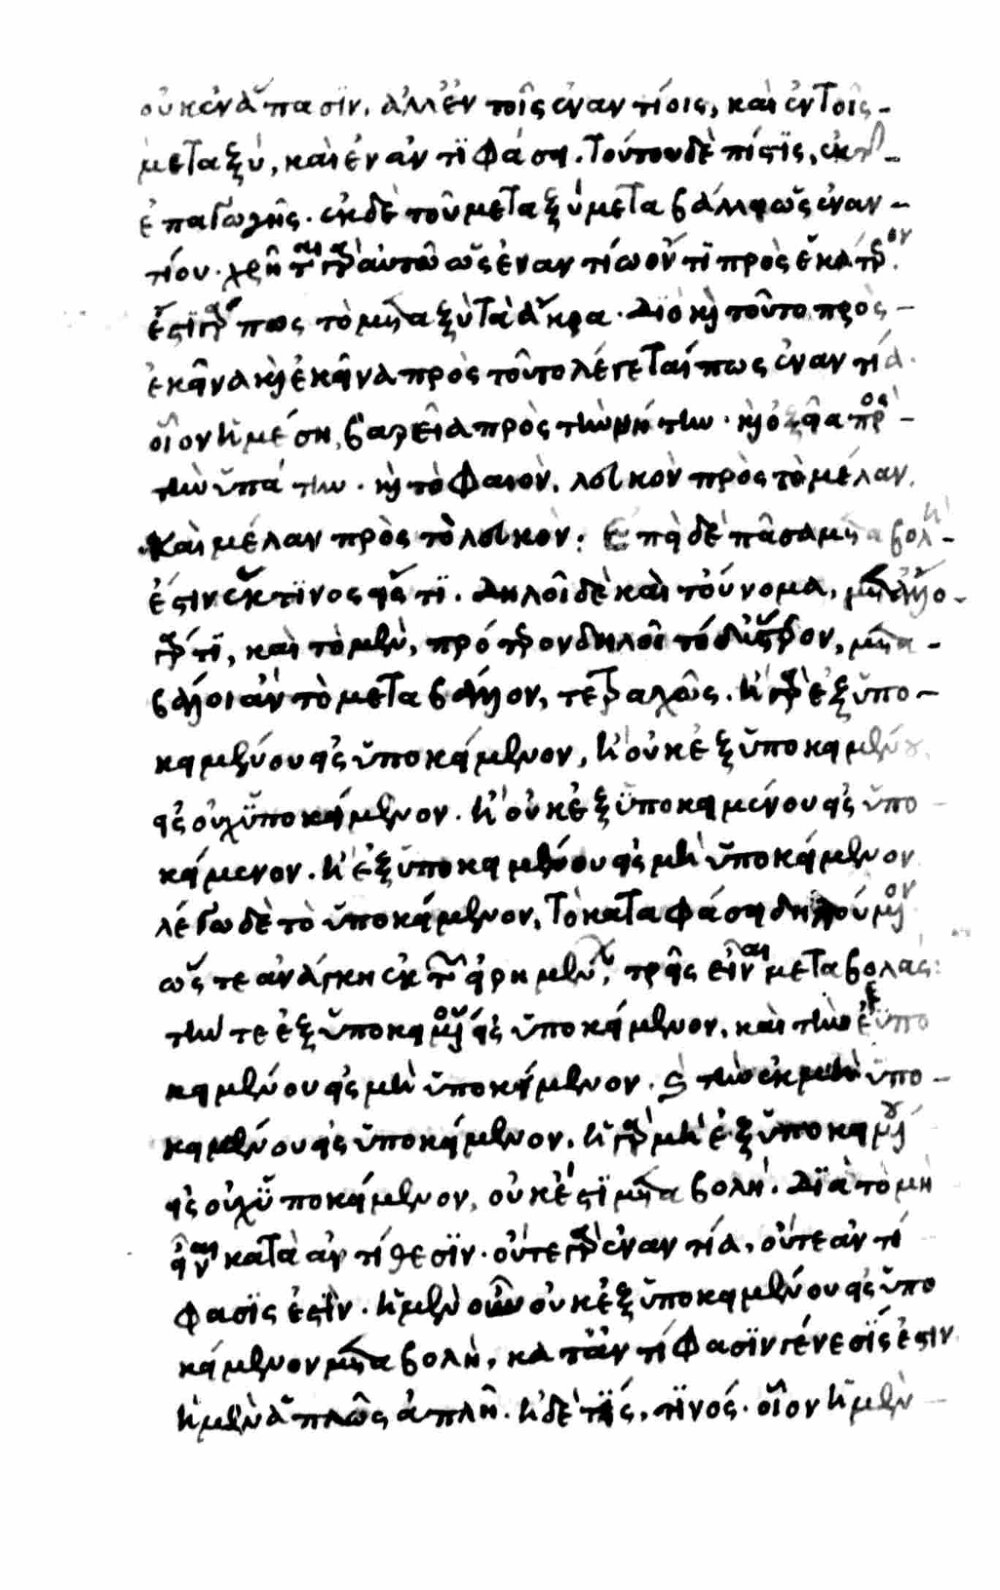 οὐκ ἐν ἅπασιν, ἀλλ' ἐν τοῖς ἐναντίοις, καὶ ἐν τοῖς
μεταξύ, καὶ ἐν ἀντιφάσει. τούτου δὲ πίστις, ἐκ τῆς
ἐπαγωγῆς. ἐκ δὲ τοῦ μεταξὺ μεταβάλλει ὡς ἐναν-
τίου. χρῆται γὰρ αὐτῶ ὡς ἐναντίω ὄντι πρὸς ἑκάτερον.
ἔστι γάρ πως τὸ μεταξὺ τὰ ἄκρα. διὸ καὶ τοῦτο πρὸς
ἐκεῖνα καὶ ἐκεῖνα πρὸς τοῦτο λέγεταί πως ἐναντία.
οἷον ἡ μέση, βαρεῖα πρὸς τὴν νήτην. καὶ ὀξεῖα πρὸς
τὴν ὑπάτην. καὶ τὸ φαιὸν, λευκὸν πρὸς τὸ μέλαν,
καὶ μέλαν πρὸς τὸ λευκόν: Ἐπεὶ δὲ πᾶσα μεταβολή
ἐστιν ἔκ τινος εἴς τι. δηλοῖ δὲ καὶ τοὔνομα, μετ' ἄλλο
γάρ τι, καὶ τὸ μὲν, πρότερον δηλοῖ τὸ δ' ὕστερον, μετα-
βάλλοι ἂν τὸ μεταβάλλον, τετραχῶς. ἢ γὰρ ἐξ ὑπο-
κειμένου εἰς ὑποκείμενον, ἢ οὐκ ἐξ ὑποκειμένου
εἰς οὐχ ὑποκείμενον. ἢ οὐκ ἐξ ὑποκειμένου εἰς ὑπο
κείμενον. ἢ ἐξ ὑποκειμένου εἰς μὴ ὑποκείμενον
λέγω δὲ τὸ ὑποκείμενον, τὸ καταφάσει δηλούμενον
ὥστε ἀνάγκη ἐκ τῶν εἰρημένων, τρεῖς εἶναι μεταβολάς:
τήν τε ἐξ ὑποκειμένου εἰς ὑποκείμενον, καὶ τὴν ἐξ ὑπο
κειμένου εἰς μὴ ὑποκείμενον. καὶ τὴν ἐκ μὴ ὑπο-
κειμένου εἰς ὑποκείμενον. ἡ γὰρ μὴ ἐξ ὑποκειμένου
εἰς οὐχ ὑποκείμενον, οὐκ ἔστι μεταβολή. διὰ τὸ μὴ
εἶναι κατὰ ἀντίθεσιν. οὔτε γὰρ ἐναντία, οὔτε ἀντί
φασις ἐστίν. ἡ μὲν οὖν οὐκ ἐξ ὑποκειμένου εἰς ὑπο
κείμενον μεταβολὴ, κατ' ἀντίφασιν γένεσίς ἐστιν
ἡ μὲν ἁπλῶς ἁπλῆ. ἡ δὲ τίς, τινός. οἷον ἡ μὲν